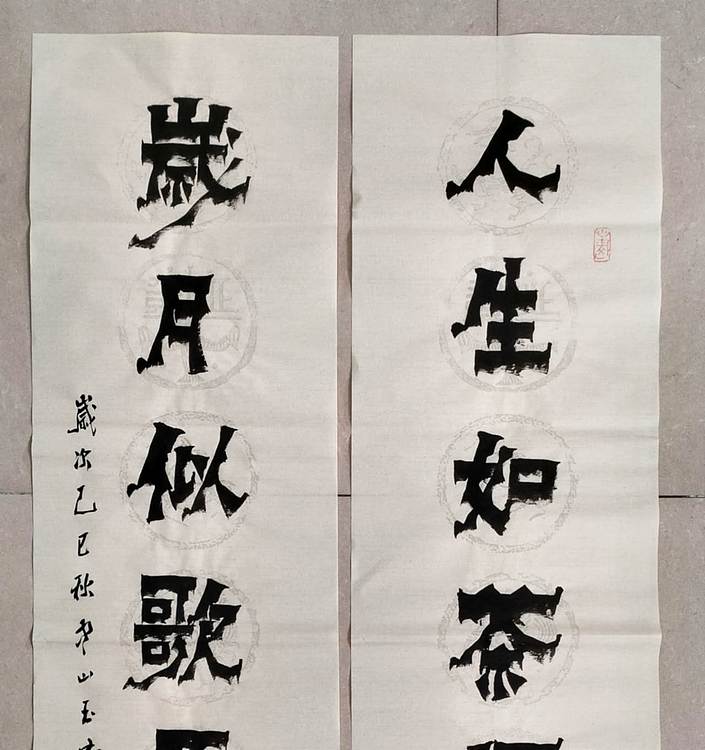 人生如茶
歲月似歌
歲次乙巳秋
山玉